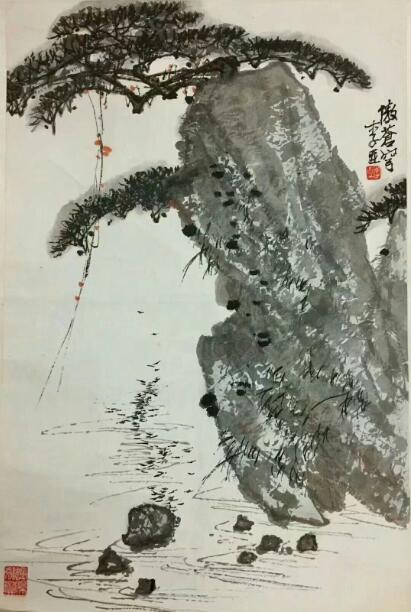 傲蒼穹
李亚